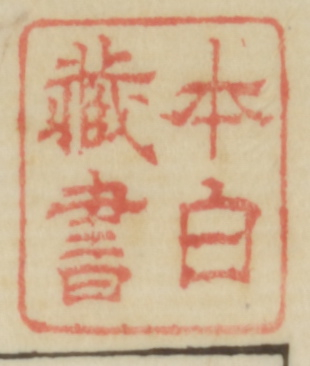 本白
藏書